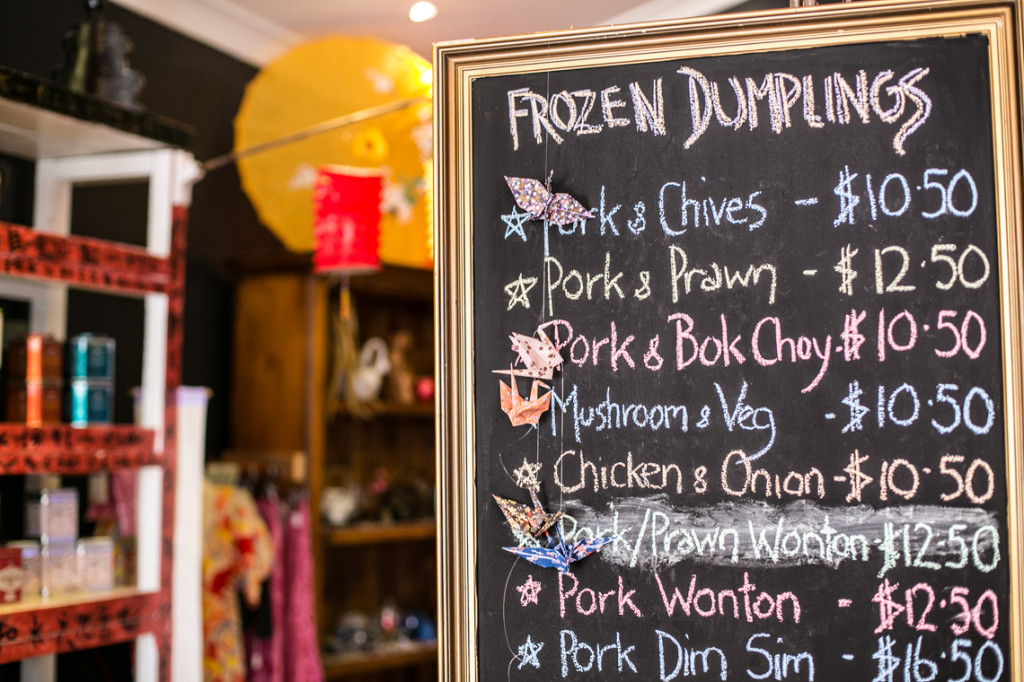 FROZEN DUMPLINGS
Pork & Chives - $10.50
Pork & Prawn - $12.50
Pork & Bok Choy - $10.50
Mushroom & Veg - $10.50
Chicken & Onion - $10.50
Pork/Prawn Wonton - $12.50
Pork Wonton - $12.50
Pork Dim Sim - $16.50